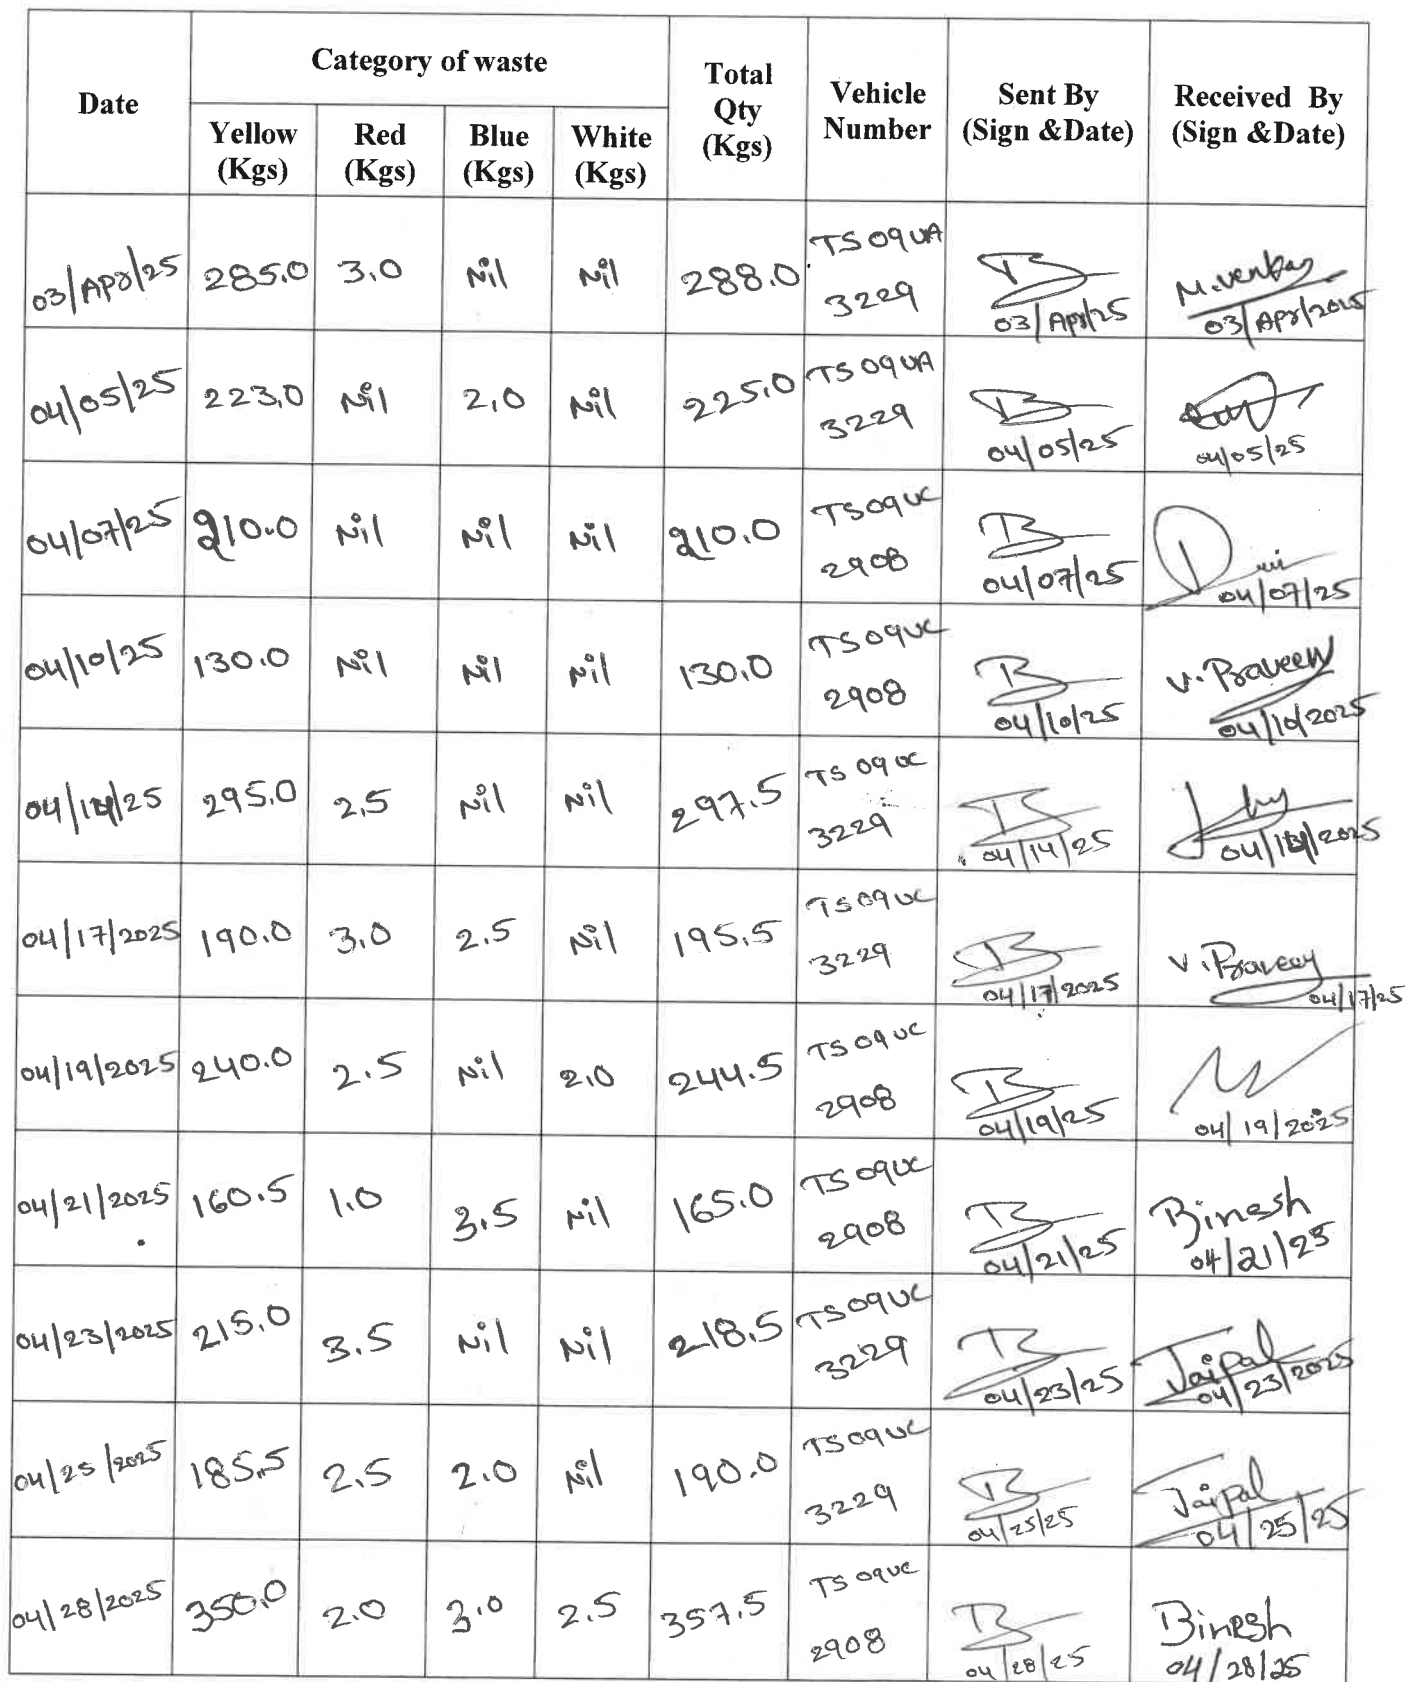 Date Category of waste Total Qty (Kgs) Vehicle Number Sent By (Sign &Date) Received By (Sign &Date)
Yellow (Kgs) Red (Kgs) Blue (Kgs) White (Kgs)
03/Apr/25 285.0 3.0 Nil Nil 288.0 TS09UA 3229 03/Apr/25 M.venkay 03/Apr/2025
04/05/25 223.0 Nil 2.0 Nil 225.0 TS09UA 3229 04/05/25 04/05/25
04/07/25 210.0 Nil Nil Nil 210.0 TS09UC 2908 04/07/25 04/07/25
04/10/25 130.0 Nil Nil Nil 130.0 TS09UC 2908 04/10/25 V. Praveen 04/10/2025
04/14/25 295.0 2.5 Nil Nil 297.5 TS09UC 3229 04/14/25 04/14/2025
04/17/2025 190.0 3.0 2.5 Nil 195.5 TS09UC 3229 04/17/2025 V. Praveen 04/17/25
04/19/2025 240.0 2.5 Nil 2.0 244.5 TS09UC 2908 04/19/25 04/19/2025
04/21/2025 160.5 1.0 3.5 Nil 165.0 TS09UC 2908 04/21/25 Binesh 04/21/25
04/23/2025 215.0 3.5 Nil Nil 218.5 TS09UC 3229 04/23/25 Jaipal 04/23/2025
04/25/2025 185.5 2.5 2.0 Nil 190.0 TS09UC 3229 04/25/25 Jaipal 04/25/25
04/28/2025 350.0 2.0 3.0 2.5 357.5 TS09UC 2908 04/28/25 Binesh 04/28/25